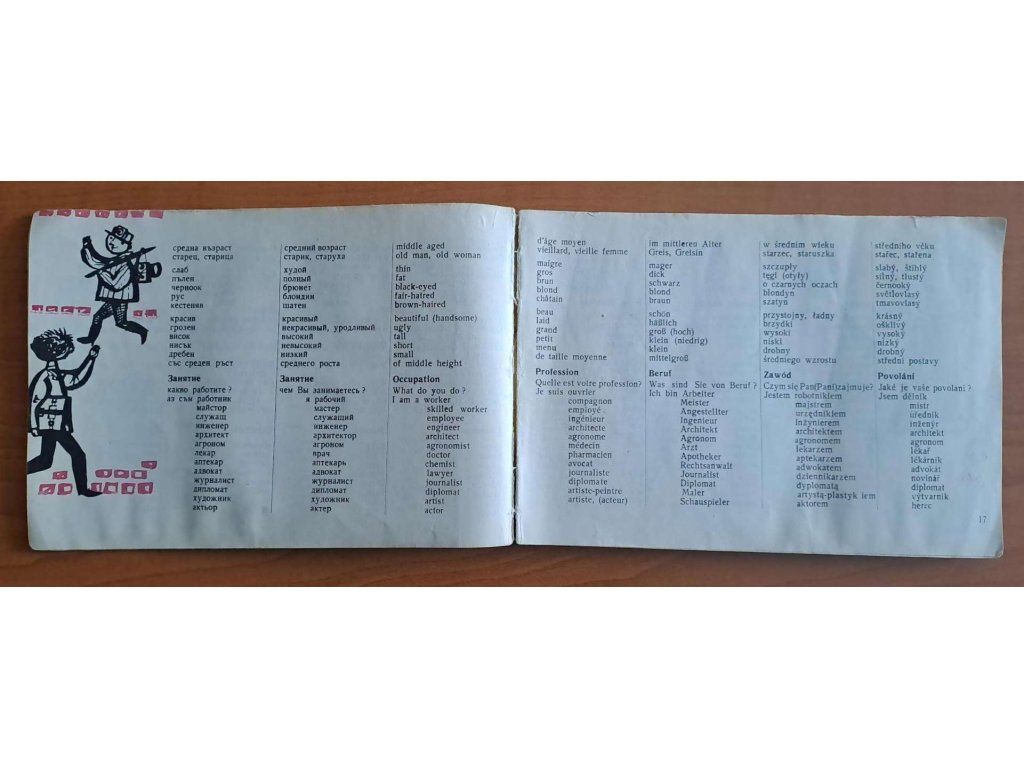 средна възраст
старец, старица
слаб
пълен
черноок
рус
кестеняв
красив
грозен
висок
нисък
дребен
със среден ръст
Занятие
какво работите ?
аз съм работник
майстор
служащ
инженер
архитект
агроном
лекар
аптекар
адвокат
журналист
дипломат
художник
актьор
средний возраст
старик, старуха
худой
полный
брюнет
блондин
шатен
красивый
некрасивый, уродливый
высокий
невысокий
низкий
среднего роста
Занятие
чем Вы занимаетесь ?
я рабочий
мастер
служащий
инженер
архитектор
агроном
врач
аптекарь
адвокат
журналист
дипломат
художник
актер
middle aged
old man, old woman
thin
fat
black-eyed
fair-haired
brown-haired
beautiful (handsome)
ugly
tall
short
small
of middle height
Occupation
What do you do ?
I am a worker
skilled worker
employee
engineer
architect
agronomist
doctor
chemist
lawyer
journalist
diplomat
artist
actor
d'âge moyen
vieillard, vieille femme
maigre
gros
brun
blond
châtain
beau
laid
grand
petit
menu
de taille moyenne
Profession
Quelle est votre profession?
Je suis ouvrier
compagnon
employé
ingénieur
architecte
agronome
médecin
pharmacien
avocat
journaliste
diplomate
artiste-peintre
artiste, (acteur)
im mittleren Alter
Greis, Greisin
mager
dick
schwarz
blond
braun
schön
häßlich
groß (hoch)
klein (niedrig)
klein
mittelgroß
Beruf
Was sind Sie von Beruf ?
Ich bin Arbeiter
Meister
Angestellter
Ingenieur
Architekt
Agronom
Arzt
Apotheker
Rechtsanwalt
Journalist
Diplomat
Maler
Schauspieler
w średnim wieku
starzec, staruszka
szczupły
tęgi (otyły)
o czarnych oczach
blondyn
szatyn
przystojny, ładny
brzydki
wysoki
niski
drobny
średniego wzrostu
Zawód
Czym się Pan(Pani)zajmuje?
Jestem robotnikiem
majstrem
urzędnikiem
inżynierem
architektem
agronomem
lekarzem
aptekarzem
adwokatem
dziennikarzem
dyplomatą
artystą-plastyk iem
aktorem
středního věku
stařec, stařena
slabý, štíhlý
silný, tlustý
černooký
světlovlasý
tmavovlasý
krásný
ošklivý
vysoký
nízký
drobný
střední postavy
Povolání
Jaké je vaše povolání ?
Jsem dělník
mistr
úředník
inženýr
architekt
agronom
lékař
lékárník
advokát
novinář
diplomat
výtvarník
herec
17